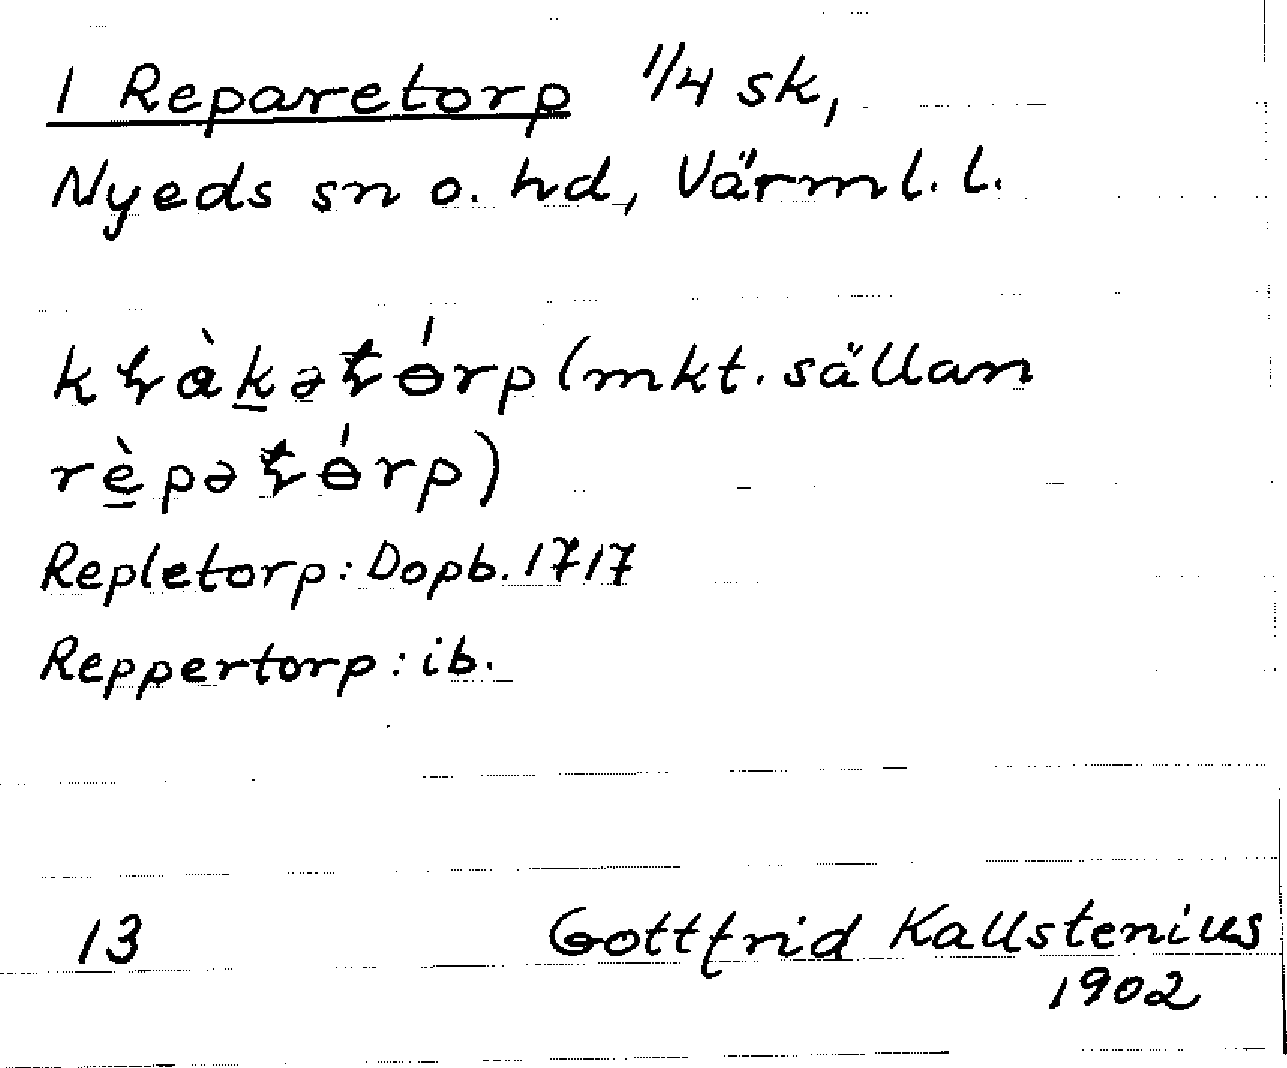 1 Reparetorp 1/4 sk,
Nyeds sn o. hd, Värml. l.
(mkt. sällan
Repletorp: Dopb. 1717
Reppertorp: ib.
13 Gottfrid Kallstenius
1902